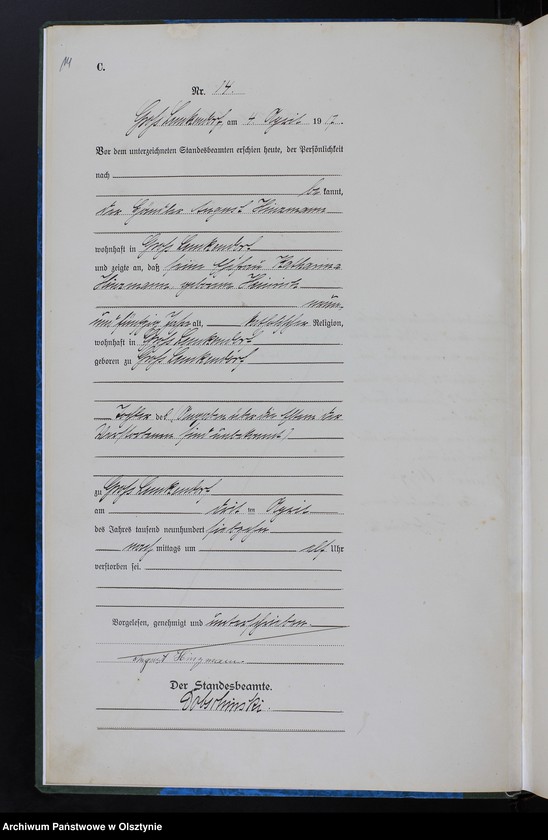 C.
Nr. 14.
Groß Lenkendorf, am 4. April 1917.
Vor dem unterzeichneten Standesbeamten erschien heute, der Persönlichkeit
nach
bekannt,
der August Hinzmann
wohnhaft in Groß Lenkendorf
und zeigte an, daß seine Ehefrau Katharina
Hinzmann geborene
neun
und fünfzig Jahre alt, katholischer Religion,
wohnhaft in Groß Lenkendorf
geboren zu Groß Lenkendorf
Tochter de (Angaben über die Eltern der
Verstorbenen sind unbekannt)
zu Groß Lenkendorf
am drei ten April
des Jahres tausend neunhundert siebzehn
nach mittags um elf Uhr
verstorben sei.
Vorgelesen, genehmigt und unterschrieben
August Hinzmann
Der Standesbeamte.
Archiwum Państwowe w Olsztynie